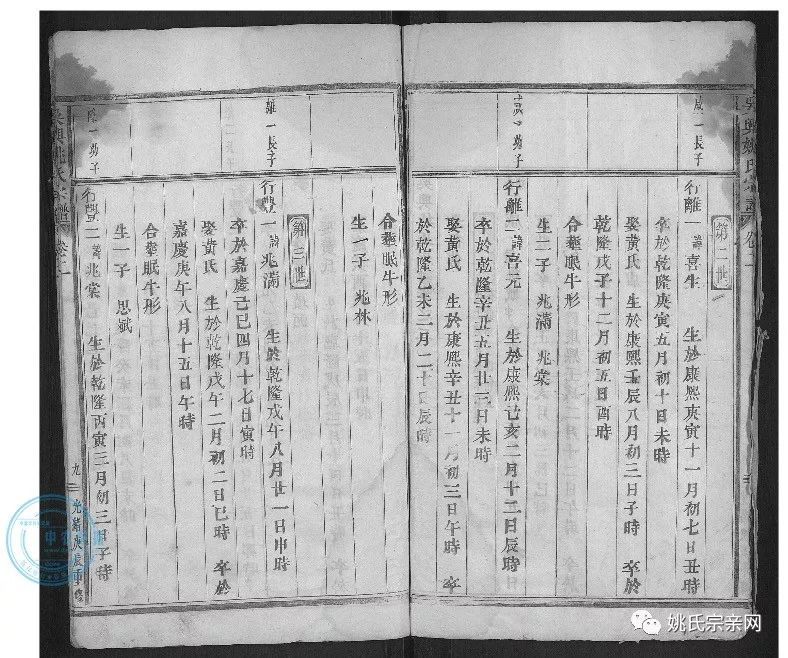 吳興姚氏宗譜 卷二
咸一長子
第二世
行離一 諱喜生 生於康熙庚寅十一月初七日丑時
卒於乾隆庚寅五月初十日未時
娶黃氏 生於康熙壬辰八月初三日子時 卒於
乾隆戊子十二月初五日酉時
合葬眠牛形
生二子 兆滿 兆棠
咸一幼子
行離二 諱喜元 生於康熙己亥二月十二日辰時
卒於乾隆辛丑五月廿三日未時
娶黃氏 生於康熙辛丑十一月初三日午時 卒
於乾隆乙未二月二十日辰時
合葬眠牛形
生一子 兆林
第三世
離一長子
行豐一 諱兆滿 生於乾隆戊午八月廿一日申時
卒於嘉慶己巳四月十七日寅時
娶黃氏 生於乾隆戊午二月初二日巳時 卒於
嘉慶庚午八月十五日午時
合葬眠牛形
生一子 思斌
離一幼子
行豐二 諱兆棠 生於乾隆丙寅三月初三日子時
吳興姚氏宗譜 卷二
九
光緒庚辰重修
姚氏宗亲网